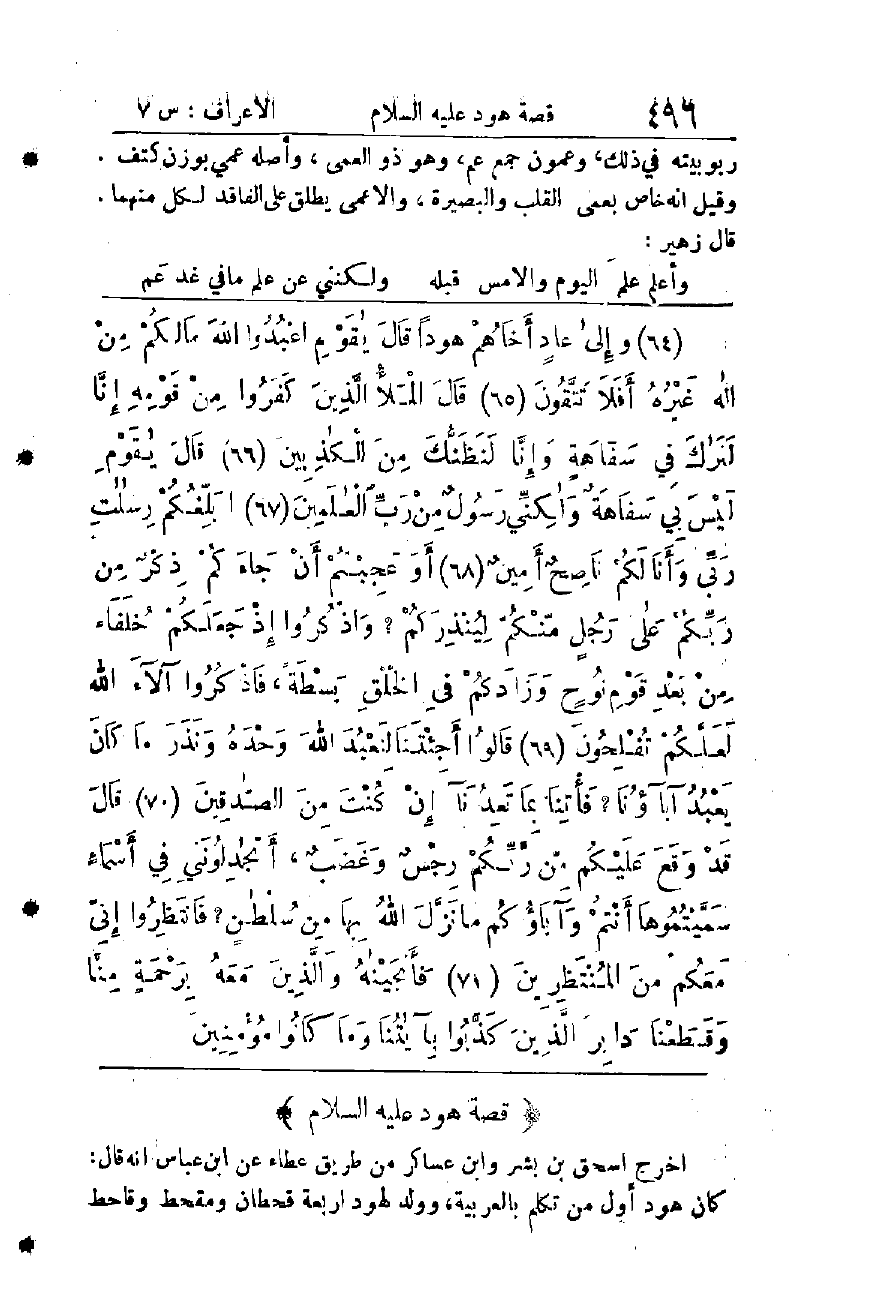 ٤٩٦ قصة هود عليه السلام الاعراف : س ٧
ربوبيته في ذلك، وعمون جمع عم، وهو ذو العمى ، وأصله عمي بوزن كتف .
وقيل انه خاص بعمى القلب والبصيرة ، والاعمى يطلق على الفاقد لكل منهما .
قال زهير :
وأعلم علمَ اليوم والامس قبله ولكنني عن علم مافي غد عم
(٦٤) وَإِلىٰ عادٍ أَخَاهُمْ هوداً قالَ يٰقَوْمِ اعْبُدُوا اللهَ مَالَكُمْ مِنْ
الٰهٍ غَيْرُهُ أَفَلَا تَتَّقُونَ (٦٥) قَالَ الْمَلَأُ الَّذِينَ كَفَرُوا مِنْ قَوْمِهِ إِنَّا
لَنَرَاكَ فِي سَفَاهَةٍ وَإِنَّا لَنَظُنُّكَ مِنَ الْكٰذِبِينَ (٦٦) قَالَ يٰقَوْمِ
لَيْسَ بِي سَفَاهَةٌ وَلٰكِنِّي رَسُولٌ مِنْ رَبِّ الْعٰلَمِينَ (٦٧) ابَلِّغُكُمْ رِسٰلٰتِ
رَبِّي وَأَنَا لَكُمْ نَاصِحٌ أَمِينٌ (٦٨) أَوَ عَجِبْتُمْ أَنْ جَاءَكُمْ ذِكْرٌ مِن
رَبِّكُمْ عَلَى رَجُلٍ مِنْكُمْ لِيُنْذِرَكُمْ ? وَاذْكُرُوا إِذْ جَعَلَكُمْ خُلَفَاءَ
مِنْ بَعْدِ قَوْمِ نُوحٍ وَزَادَكُمْ فِي الْخَلْقِ بَسْطَةً ، فَاذْكُرُوا آلَاءَ اللهِ
لَعَلَّكُمْ تُفْلِحُونَ (٦٩) قَالُوا أَجِئْتَنَا لِنَعْبُدَ اللهَ وَحْدَهُ وَنَذَرَ مَا كَانَ
يَعْبُدُ آبَاؤُنَا ? فَأْتِنَا بِمَا تَعِدُنَا إِنْ كُنْتَ مِنَ الصّٰدِقِينَ (٧٠) قَالَ
قَدْ وَقَعَ عَلَيْكُم مِن رَبِّكُمْ رِجْسٌ وَغَضَبٌ ، أَتُجٰدِلُونَنِي فِي أَسْمَاءٍ
سَمَّيْتُمُوهَا أَنْتُمْ وَآبَاؤُكُم مَا نَزَّلَ اللهُ بِهَا مِن سُلْطٰنٍ ? فَانْتَظِرُوا إِنِّي
مَعَكُمْ مِنَ الْمُنْتَظِرِينَ (٧١) فَأَنْجَيْنٰهُ وَالَّذِينَ مَعَهُ بِرَحْمَةٍ مِنَّا
وَقَطَعْنَا دَابِرَ الَّذِينَ كَذَّبُوا بِآيٰتِنَا وَمَا كَانُوا مُؤْمِنِينَ
﴿ قصة هود عليه السلام ﴾
اخرج اسحق بن بشر وابن عساكر من طريق عطاء عن ابن عباس انه قال :
كان هود أول من تكلم بالعربية، وولد لهود اربعة قحطان ومقحط وقاحط